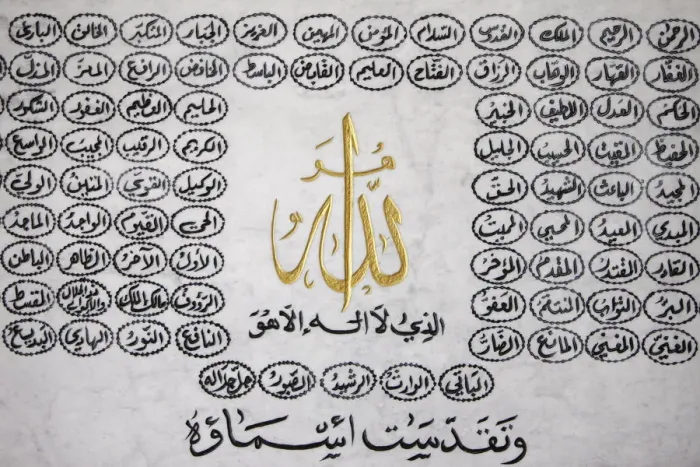 الرحمن الرحيم الملك القدس السلام المؤمن المهيمن العزيز الجبار المتكبر الخالق البارئ
الغفار القهار الوهاب الرزاق الفتاح العليم القابض الباسط الخافض الرافع المعز المذل
الحكم العدل اللطيف الخبير الحليم العظيم الغفور الشكور
الحفيظ المقيت الحسيب الجليل الكريم الرقيب المجيب الواسع
المجيد الباعث الشهيد الحق الوكيل القوي المتين الولي
المبدي المعيد المحيي المميت الحي القيوم الواجد الماجد
القادر المقتدر المقدم المؤخر الأول الآخر الظاهر الباطن
البر التواب المنتقم العفو الرؤوف مالك الملك ذو الجلال والإكرام المقسط
الغني المغني المانع الضار النافع النور الهادي البديع
هو
الله
الذي لا اله الا هو
الباقي الوارث الرشيد الصبور جل جلاله
وتقدست أسماؤه